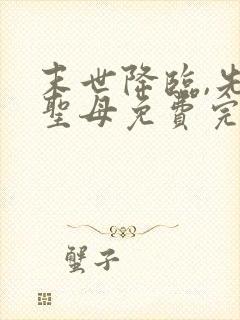 末世降臨,先
聖母免費完
蟹子